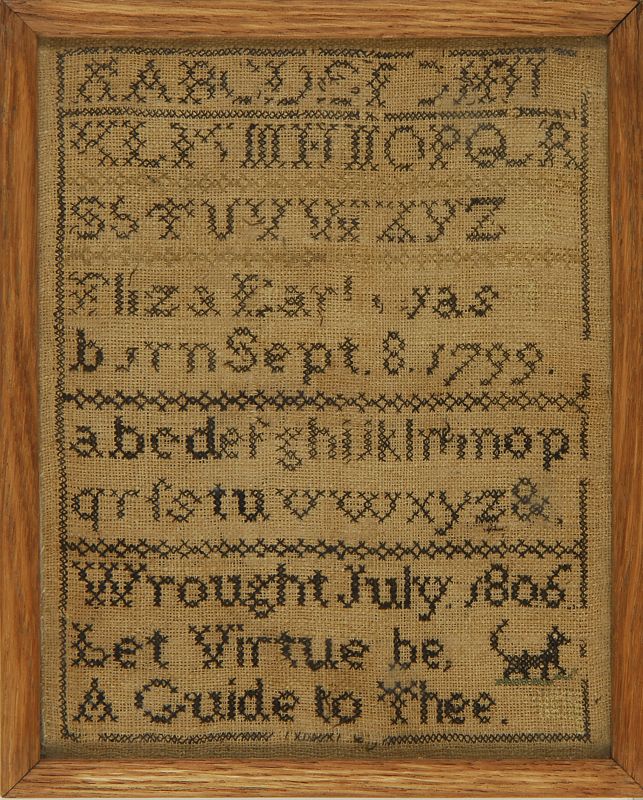 K L M N O P Q R
S s T U V W X Y Z
Eliza
born Sept. 8. 1799.
a b c d e f g h i j k l m n o p
q r ſ s t u v w x y z &.
Wrought July 1806
Let Virtue be,
A Guide to Thee.